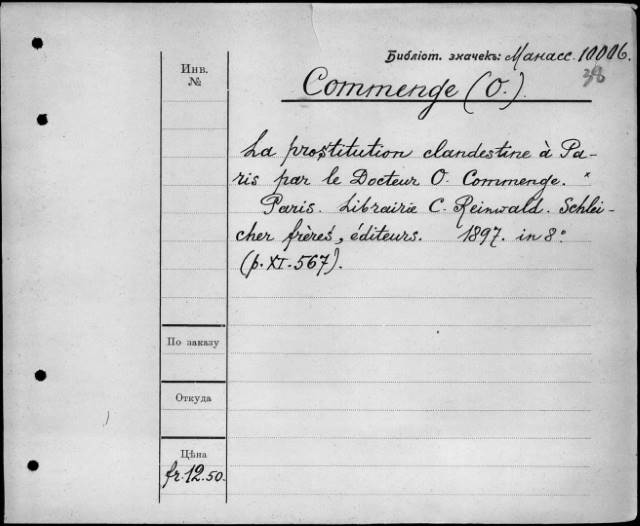 Библіот. значекъ: Манасс. 10006.
38
Инв.
№
Commenge (O.).
La prostitution clandestine à Pa-
ris par le Docteur O. Commenge. "
Paris. Librairie C. Reinwald. Schlei-
cher frères, éditeurs. 1897. in 8°
(p. XI-567).
По заказу
Откуда
Цѣна
fr. 12.50.